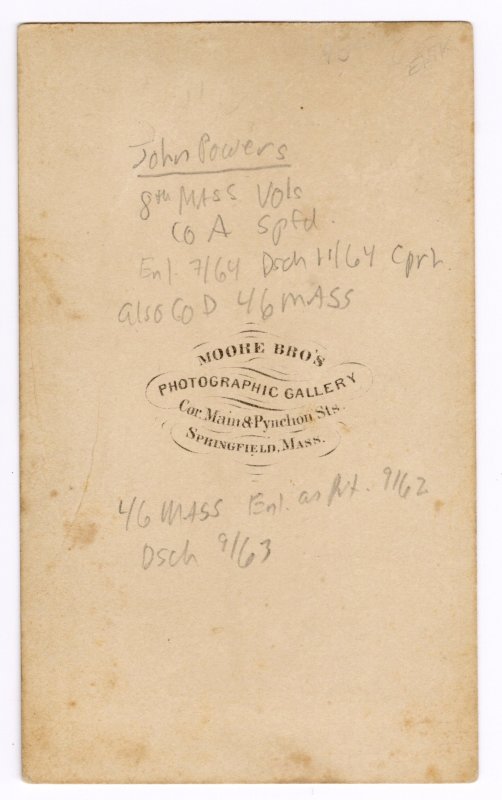 John Powers
8th MASS Vols
Co A Spfd.
Enl. 7/64 Dsch 11/64 Cprl.
also Co D 46 MASS
MOORE BRO'S
PHOTOGRAPHIC GALLERY
Cor. Main & Pynchon Sts.
SPRINGFIELD, MASS.
46 MASS Enl. as Pvt. 9/62
Dsch 9/63